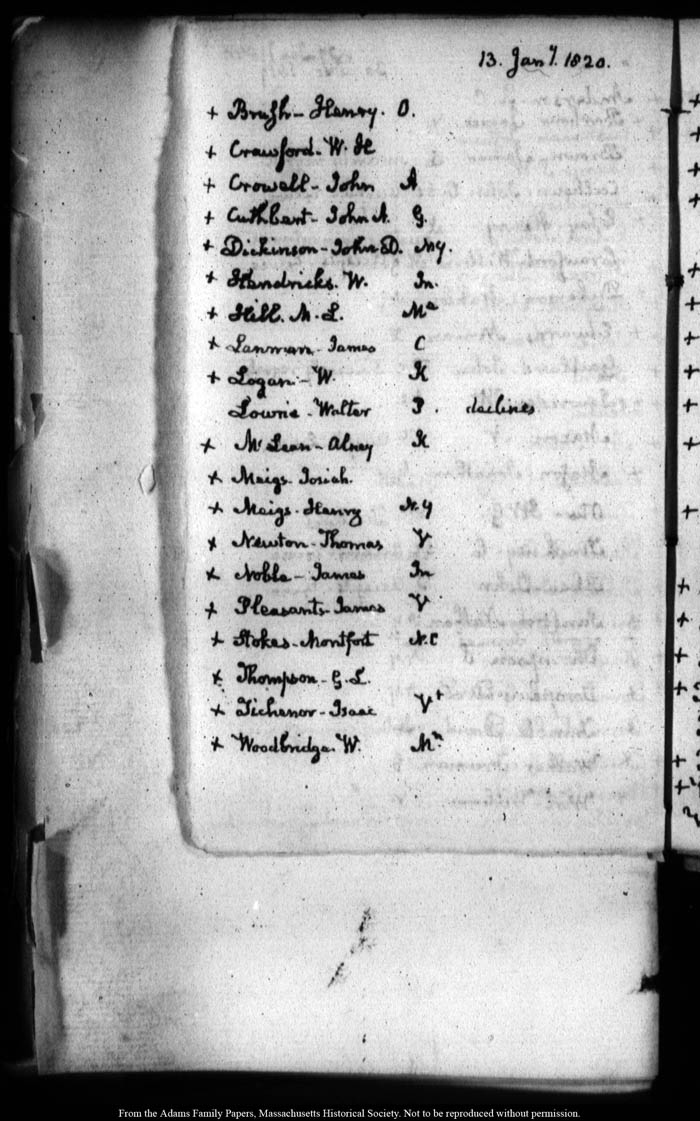 13. Jany. 1820.
+ Brush - Henry. O.
+ Crawford. W. H
+ Crowell - John A
+ Cuthbert - John A. G.
+ Dickinson - John D. NY.
+ Hendricks. W. In.
+ Hill. M. L. Ma
+ Lanman - James C
+ Logan - W. K
Lowrie - Walter P. declines
+ McLean - Alney K
+ Meigs. Josiah.
+ Meigs. Henry N.Y
+ Newton - Thomas V
+ Noble - James In
+ Pleasants - James V
+ Stokes - Montfort N.C
+ Thompson - G. L.
+ Tichenor - Isaac Vt
+ Woodbridge. W. Mn
From the Adams Family Papers, Massachusetts Historical Society. Not to be reproduced without permission.